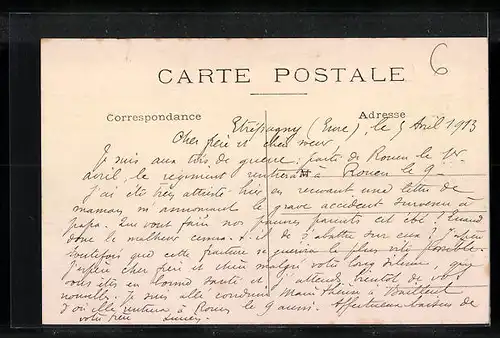 6
CARTE POSTALE
Correspondance
Adresse
Etrépagny (Eure), le 5 Avril 1913
Cher frère et chère sœur
Je suis aux tirs de guerre; partis de Rouen le 1er
avril, le régiment rentrera à Rouen le 9.
J'ai été très attristé hier en recevant une lettre de
maman m'annonçant le grave accident survenu à
papa. Que vont faire nos pauvres parents cet été? Quand
donc le malheur cessera-t-il de s'abattre sur eux? J'espère
toutefois que cette fracture se guérira le plus vite possible.
J'espère cher frère et chère malgré votre long silence que
vous êtes en bonne santé et j'attends bientôt de vos
nouvelles. Je suis allé conduire à
d'où elle rentrera à Rouen le 9 aussi. Affectueux baisers de
votre frère